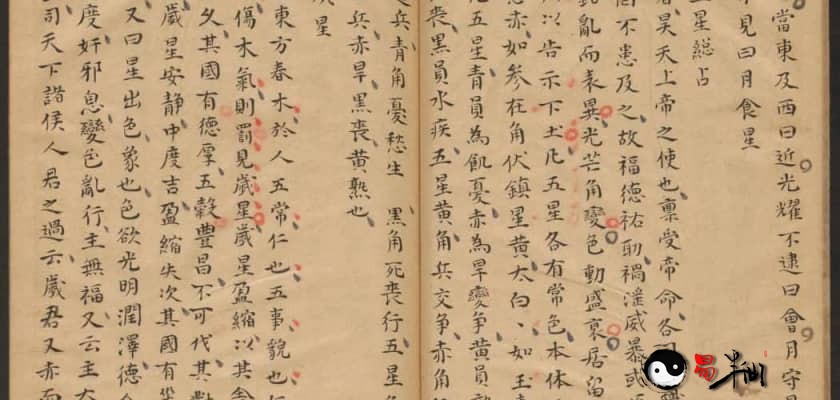 當東及西曰近光耀不逮曰會月守
不見曰月食星
五星總占
昊天上帝之使也稟受帝命各司
不患及之故福德祐助禍滛威暴或
亂而表異光芒角變色動盛衰居留
以告示下土凡五星各有常色本体
赤如参左角伏鎮星黄太白如
五星青員為飢憂赤為旱變争黄員
喪黒員水疾五星黄角兵交争赤角
兵青角憂愁生 黒角死喪行五星
兵赤旱黒喪黄熟也
星
東方春木於人五常仁也五事貌也
傷木氣則罰見歲星歲星盈縮以其舎
久其國有德厚五穀豊昌不可代其
歲星安静中度吉盈縮失次其國有
又曰星出色象也色欲光明潤澤德
度奸邪息變色亂行主無福又云主
司天下諸侯人君之過云歲君又赤而
易半仙